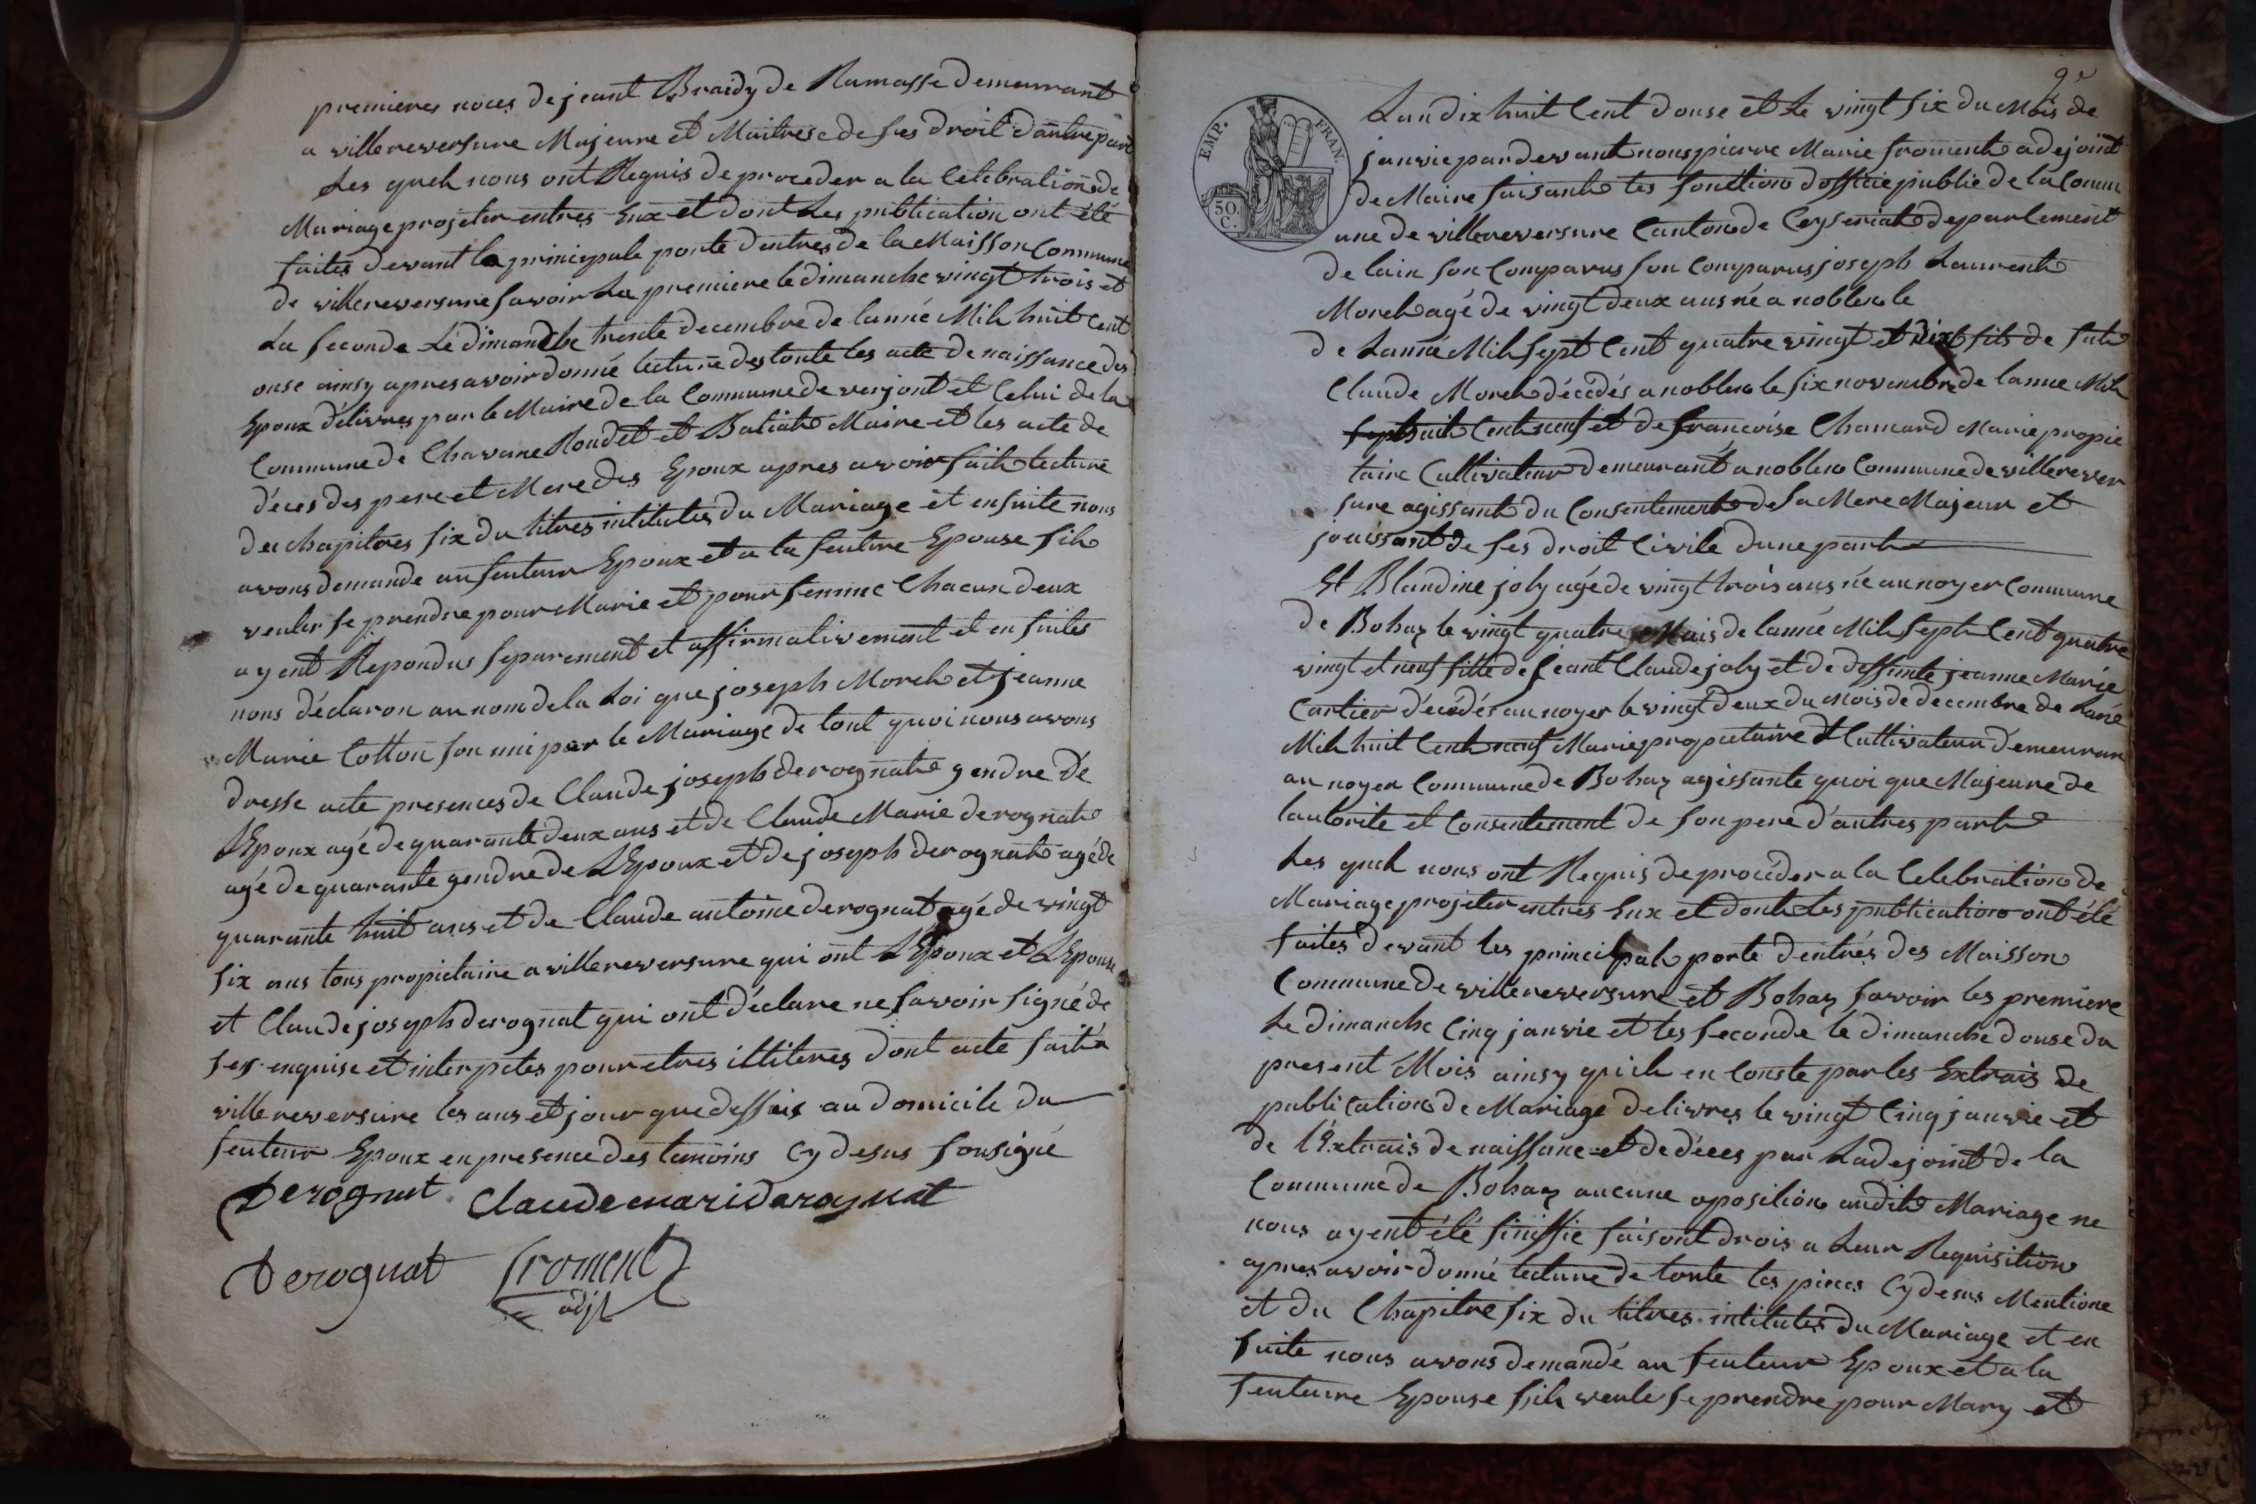 premieres noces de jeant Braidy de Ramasse demeurant
a villereversure Majeure et Maitrese de ses droit d'antre part
Les quch nous ont Requis de proceder a la Celebration de
Mariage projeter entres Eux et dont Les publication ont été
faites devant la principale porte d'entres de la Maisson Commune
de villereversure savoir La premiere le dimanche vingt trois et
La seconde Le dimanche trente decembre de lanné Mil huit Cent
onse ainsy apres avoir donné lecture des toute les acte de naissance des
Epoux délivres par le Maire de la Commune de verjont et Celui de la
Commune de Chavane Roudet et Batiat Maire et les acte de
déces des pere et Mere des Epoux apres avoir fait lecture
des chapitres six du titres intitutes du Mariage et ensuite nous
avons demande au feuteur Epoux et a la feuture Epouse sils
veuler se prendre pour Marie et pour femme Chacun deux
ayent Repondus separement et affirmativement et en suites
nous déclaron au nom de la Loi que joseph Morel et jeanne
Marie Cotton son uni par le Mariage de tout quoi nous avons
dresse acte presences de Claude joseph derognat gendre de
LEpoux agé de quarante deux ans et de Claude Marie derognat
agé de quarante gendre de LEpoux et de joseph derognat agé de
quarante huit ans et de Claude antoine derognat agé de vingt
six ans tous propietaire a villereversure qui ont LEpoux et LEpouse
et Claude joseph derognat qui ont déclare ne savoir signé de
ses enquise et interpetes pour etres illiteres dont acte fait a
villereversure les ans et jour que dessus au domicile du
feuteur Epoux en presence des temoins cy desus sousigné
Derognat Claude mari derognat
Derognat froment
adjt
9e
EMP. FRAN.
50.
C.
Lan dix huit Cent douse et Le vingt six du Mois de
janvie par devant nous pierre Marie froment adejoint
de Maire faisant les fonction dofficie public de la Comm
une de villereversure Canton de Ceyseriat departement
de lain son Comparus son Comparus joseph Laurent
Morel agé de vingt deux ans né a noblens le
de Lanné Mil sept Cent quatre vingt et dix fils de fut
Claude Morel décédés a noblens le six novembre de lanne Mil
sept huit Cent neuf et de francoise Chamard Marie propie
taire Cultivateur demeurant a noblens Commune de villerever
sure agissant du Consentement de sa Mere Majeur et
jouissant de ses droit Civile dune part
Et Blandine joly agé de vingt trois ans né au noyer Commune
de Bohaz le vingt quatre Mais de lanné Mil sept Cent quatre
vingt et neuf fille de jeant Claude joly et de deffunte jeanne Marie
Cartier décédés au noyer le vingt deux du Mois de decembre de Lané
Mil huit Cent neuf Marie propietaire et Cultivateur demeuran
au noyer Commune de Bohaz agissante quoi que Majeure de
lautorite et Consentement de son pere d'autres part
Les quch nous ont Requis de procéder a la Celebration de
Mariage projeter entres Eux et dont Les publication ont été
faites devant les principal porte dentrés des Maisson
Commune de villereversure et Bohaz savoir les premiere
Le dimanche Cinq janvie et les seconde le dimanche douse du
present Mois ainsy quil en Conste par les Extrais de
publication de Mariage delivres le vingt Cinq janvie et
de l'Extrais de naissance et de déces par Ladejoint de la
Commune de Bohaz aucune oposition audit Mariage ne
nous ayent été sinissie faisont drois a Leur Requisition
apres avoir donné lecture de toute les pieces cy desus Mentione
et du Chapitre six du titres intitutes du Mariage et en
suite nous avons demandé au feuteur Epoux et a la
feuteure Epouse sils veule se prendre pour Mary et